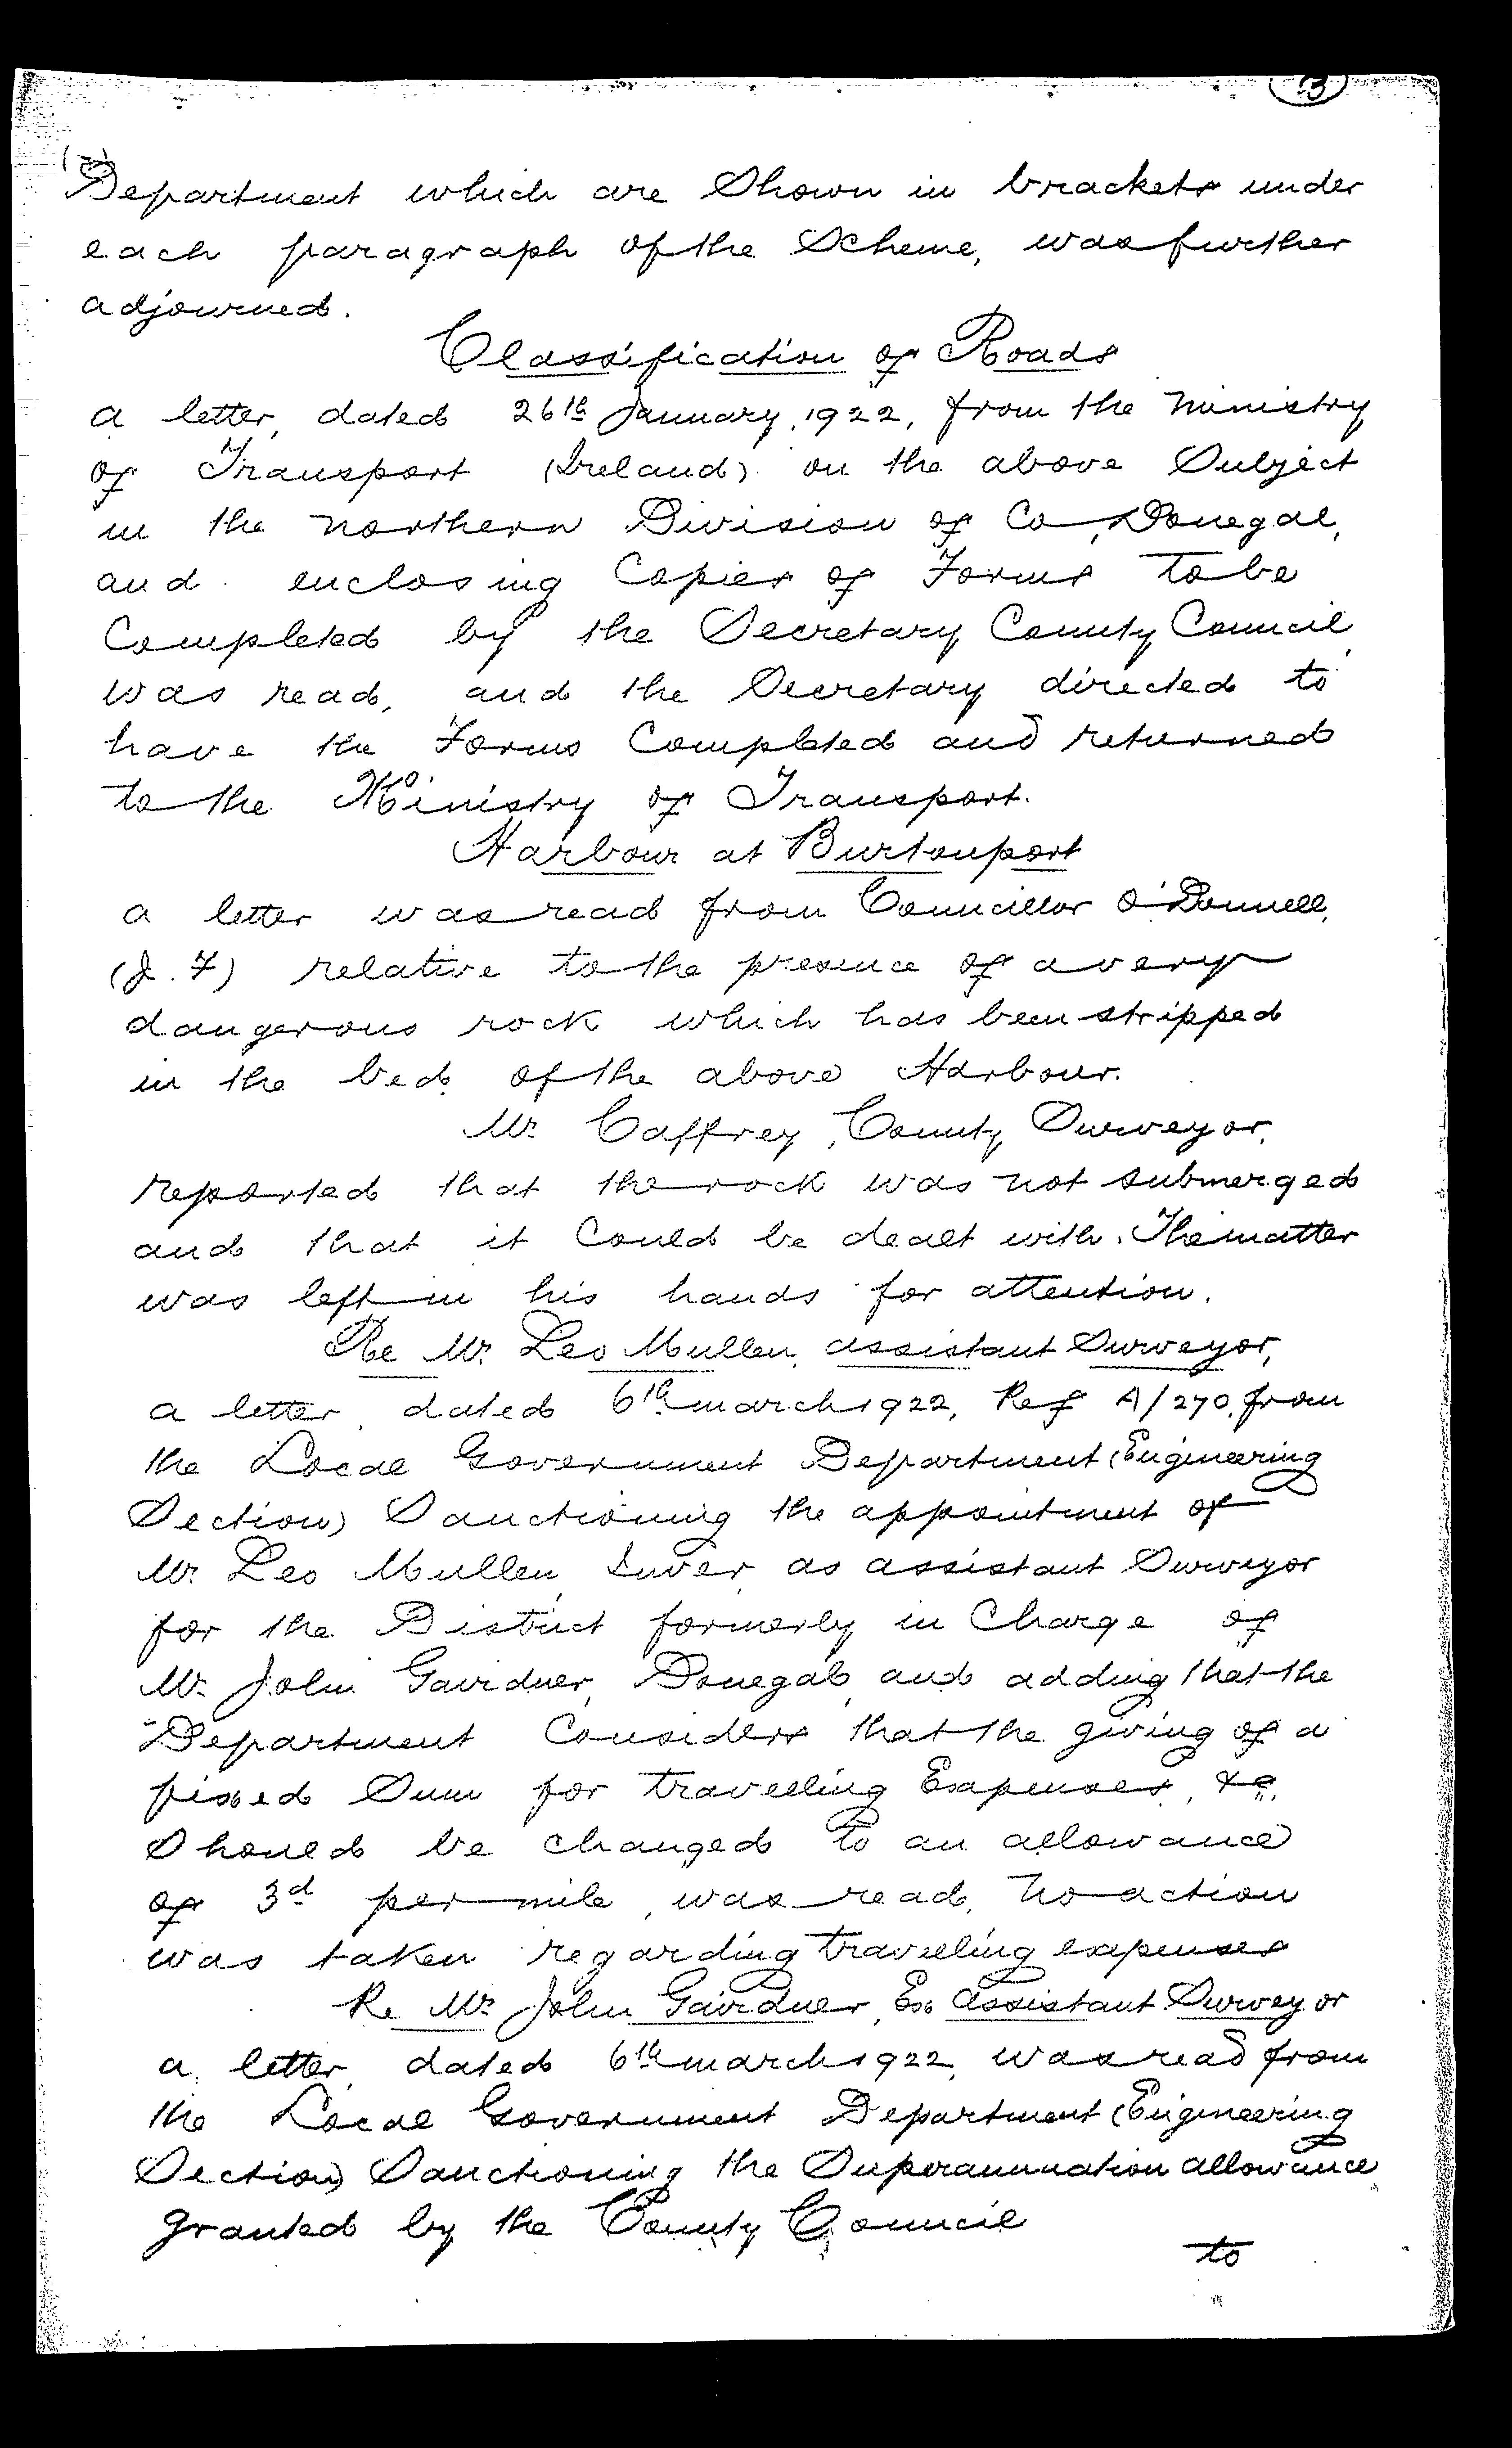 13
Department which are Shown in brackets under
each paragraph of the Scheme, was further
adjourned.
Classification of Roads
a letter, dated 26th January, 1922, from the Ministry
of Transport (Ireland) on the above Subject
in the northern Division of Co, Donegal,
and enclosing Copies of Forms to be
Completed by the Secretary County Council
was read, and the Secretary directed to
have the Forms Completed and returned
to the Ministry of Transport.
Harbour at Burtonport
a letter was read from Councillor O'Donnell,
(J. F) relative to the presence of a very
dangerous rock which has been stripped
in the bed of the above Harbour.
Mr. Caffrey, County Surveyor,
reported that the rock was not submerged
and that it Could be dealt with. The matter
was left in his hands for attention.
Re Mr. Leo Mullen, assistant Surveyor,
a letter, dated 6th march 1922, Ref A/270, from
the Local Government Department (Engineering
Section) Sanctioning the appointment of
Mr. Leo Mullen, Inver, as assistant Surveyor
for the District formerly in Charge of
Mr. John Gairdner, Donegal, and adding that the
Department Considers that the giving of a
fixed Sum for travelling Expenses, &c.
Should be changed to an allowance
of 3d per mile, was read, no action
was taken regarding travelling expenses
Re Mr. John Gairdner, Ex Assistant Surveyor
a letter, dated 6th march 1922, was read from
the Local Government Department (Engineering
Section) Sanctioning the Superannuation allowance
granted by the County Council
to